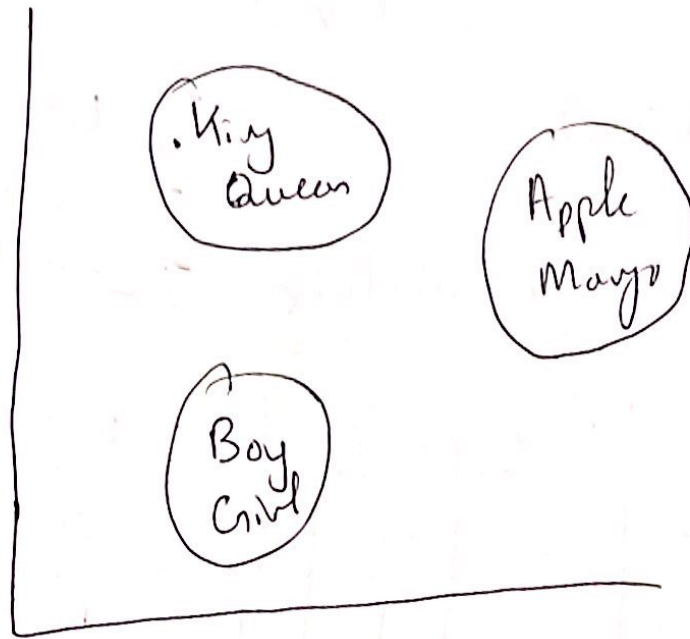 King
Queen
Apple
Mango
Boy
Girl